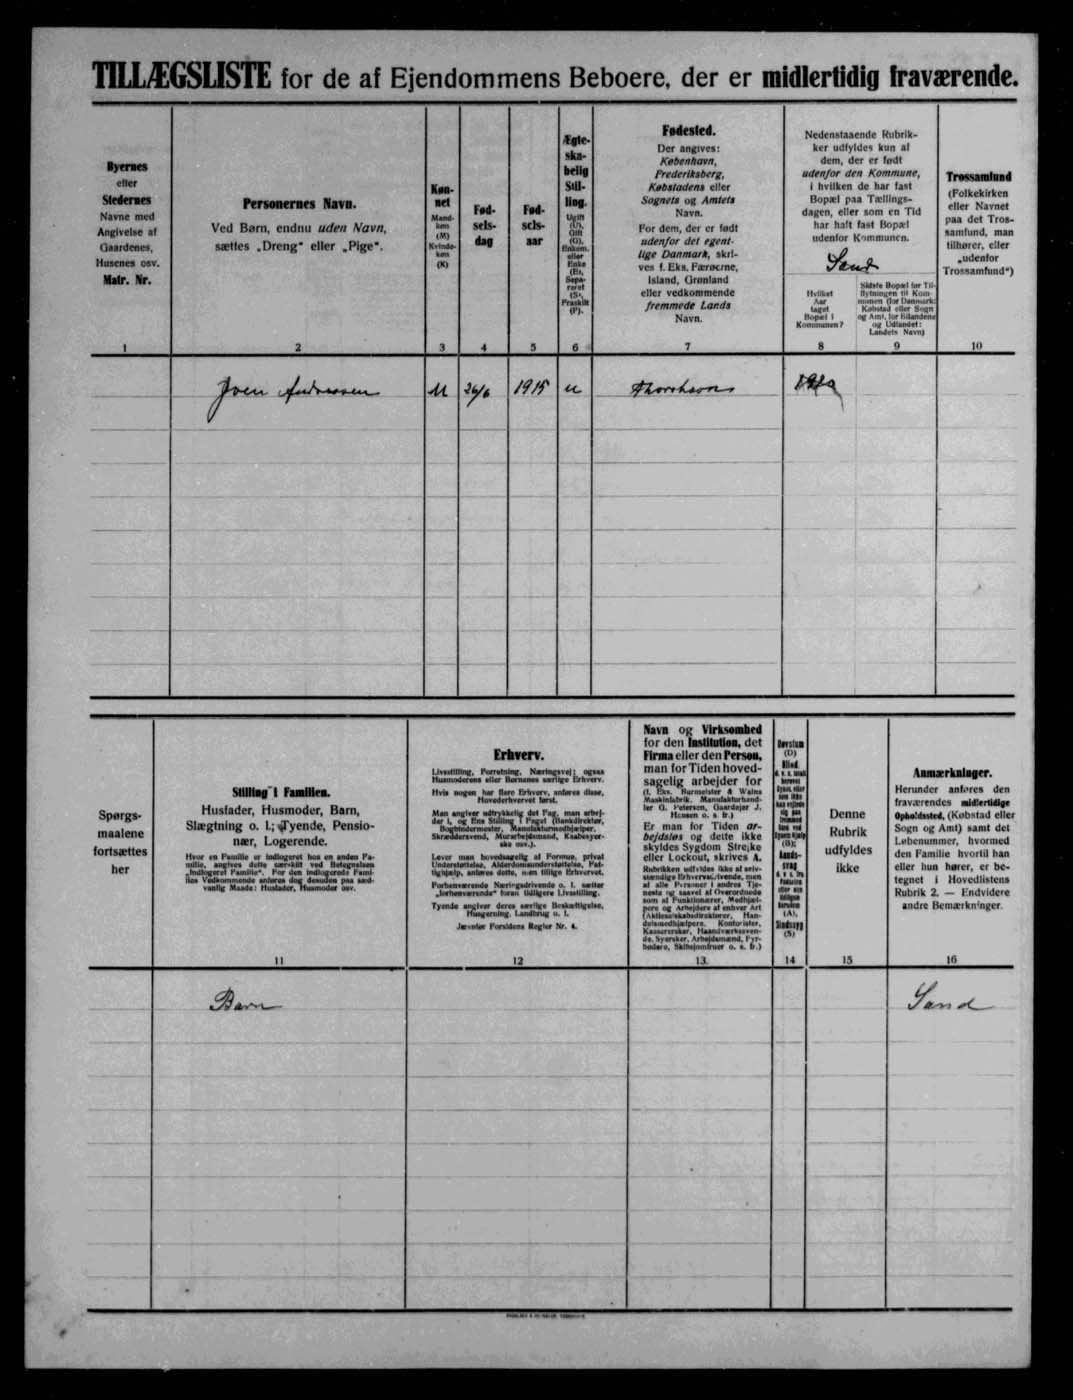 TILLÆGSLISTE for de af Ejendommens Beboere, der er midlertidig fraværende.
Byernes
eller
Stedernes
Navne med
Angivelse af
Gaardenes,
Husenes osv.
Matr. Nr.
1
Personernes Navn.
Ved Børn, endnu uden Navn,
sættes „Dreng“ eller „Pige“.
2
Køn-
net
Mand-
køn
(M)
Kvinde-
køn
(K)
3
Fød-
sels-
dag
4
Fød-
sels-
aar
5
Ægte-
ska-
belig
Stil-
ling.
Ugift
(U),
Gift
(G),
Enkem.
eller
Enke
(E),
Sepa-
reret
(S),
Fraskilt
(F).
6
Fødested.
Der angives:
København,
Frederiksberg,
Købstadens eller
Sognets og Amtets
Navn.
For dem, der er født
udenfor det egent-
lige Danmark, skri-
ves f. Eks. Færøerne,
Island, Grønland
eller vedkommende
fremmede Lands
Navn.
7
Nedenstaaende Rubrik-
ker udfyldes kun af
dem, der er født
udenfor den Kommune,
i hvilken de har fast
Bopæl paa Tællings-
dagen, eller som en Tid
har haft fast Bopæl
udenfor Kommunen.
Sand
Hvilket
Aar
taget
Bopæl i
Kommunen?
8
Sidste Bopæl før Til-
flytningen til Kom-
munen (for Danmark:
Købstad eller Sogn
og Amt, for Bilandene
og Udlandet:
Landets Navn)
9
Trossamfund
(Folkekirken
eller Navnet
paa det Tros-
samfund, man
tilhører, eller
„udenfor
Trossamfund“)
10
Joen Andreasen M 26/6 1915 u Thorshavn
Spørgs-
maalene
fortsættes
her
Stilling i Familien.
Husfader, Husmoder, Barn,
Slægtning o. l.; Tyende, Pensio-
nær, Logerende.
Hvor en Familie er indlogeret hos en anden Fa-
milie, angives dette særskilt ved Betegnelsen
„Indlogeret Familie“. For den indlogerede Fami-
lies Vedkommende anføres dog desuden paa sæd-
vanlig Maade: Husfader, Husmoder osv.
11
Erhverv.
Livsstilling, Forretning, Næringsvej; ogsaa
Husmoderens eller Børnenes særlige Erhverv.
Hvis nogen har flere Erhverv, anføres disse,
Hovederhvervet først.
Man angiver udtrykkelig det Fag, man arbej-
der i, og Ens Stilling i Faget (Bankdirektør,
Bogbindermester, Manufakturmedhjælper,
Skræddersvend, Murarbejdsmand, Kasbesyer-
ske osv.).
Lever man hovedsagelig af Formue, privat
Understøttelse, Alderdomsunderstøttelse, Fat-
tighjælp, anføres dette, men tillige Erhvervet.
Forhenværende Næringsdrivende o. l. sætter
„forhenværende“ foran tidligere Livsstilling.
Tyende angiver deres særlige Beskæftigelse,
Husgerning, Landbrug o. l.
Jævnfør Forsidens Regler Nr. 4.
12
Navn og Virksomhed
for den Institution, det
Firma eller den Person,
man for Tiden hoved-
sagelig arbejder for
(f. Eks. Burmeister & Wains
Maskinfabrik, Manufakturhand-
ler G. Petersen, Gaardejer J.
Hansen o. s. fr.)
Er man for Tiden ar-
bejdsløs og dette ikke
skyldes Sygdom Strejke
eller Lockout, skrives A.
Rubrikken udfyldes ikke af selv-
stændige Erhvervsdrivende, men
af alle Personer i andres Tje-
neste og saavel af Overordnede
som af Funktionærer, Medhjæl-
pere og Arbejdere af enhver Art
(Aktieselskabsdirektører, Han-
delsmedhjælpere, Kontorister,
Kassererske, Haandværkssven-
de, Syersker, Arbejdsmænd, Fyr-
bødere, Skibsjomfruer o. s. fr.)
13.
Døvstum
(D)
Blind
(B);
Aands-
svag
(A),
Sindssyg
(S)
14
Denne
Rubrik
udfyldes
ikke
15
Anmærkninger.
Herunder anføres den
fraværendes midlertidige
Opholdssted, (Købstad eller
Sogn og Amt) samt det
Løbenummer, hvormed
den Familie hvortil han
eller hun hører, er be-
tegnet i Hovedlistens
Rubrik 2. — Endvidere
andre Bemærkninger.
16
Barn Sand